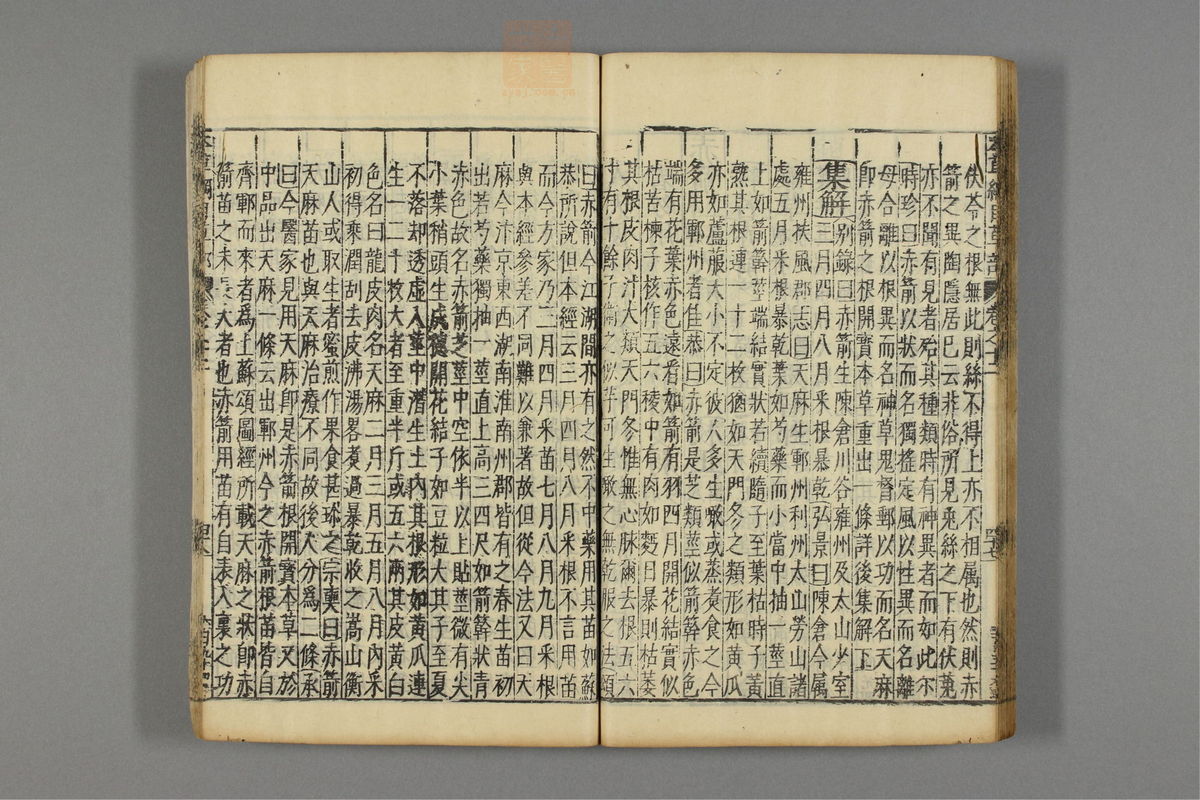 伏苓之根無此則絲不得上亦不相属也然則赤
箭之異陶隱居已云非俗所見兎絲之下有伏菟
亦不聞有見者殆其種類時有神異者而如此尔
時珍曰赤箭以狀而名獨搖定風以性異而名離
母合離以根異而名神草鬼督郵以功而名天麻
即赤箭之根開寳本草重出一條詳後集解下
集解别録曰赤箭生陳倉川谷雍州及太山少室
三月四月八月釆根暴乾弘景曰陳倉今属
雍州扶風郡志曰天麻生鄆州利州太山勞山諸
處五月釆根暴乾葉如芍藥而小當中抽一莖直
上如箭簳莖端結實狀若續隨子至葉枯時子黃
熟其根連一十二枚猶如天門冬之類形如黃瓜
亦如蘆菔大小不定彼人多生噉或蒸煑食之今
多用鄆州者佳恭曰赤箭是芝類莖似箭簳赤色
端有花葉赤色遠看如箭有羽四月開花結實似
枯苦楝子核作五六稜中有肉如麪日暴則枯萎
其根皮肉汁大類天門冬惟無心脉爾去根五六
寸有十餘子衛之似芋可生噉之無乾服之法頌
曰赤箭今江湖間亦有之然不中藥用其苗如蘇
恭所說但本經云三月四月八月釆根不言用苗
而今方家乃三月四月釆苗七月八月九月釆根
與本經參差不同難以兼著故但從今法又曰天
麻今汴京東西湖南淮南州郡皆有之春生苗初
出若芍藥獨抽一莖直上高三四尺如箭簳狀青
赤色故名赤箭芝莖中空依半以上貼莖微有尖
小葉稍頭生成穗開花結子如豆粒大其子至夏
不落却透虛入莖中潛生土內其根形如黃瓜連
生一二十枚大者至重半斤或五六兩其皮黃白
色名曰龍皮肉名天麻二月三月五月八月內釆
初得乘潤刮去皮沸湯畧煑過暴乾收之嵩山衡
山人或取生者蜜煎作果食甚珍之宗奭曰赤箭
天麻苗也與天麻治療不同故後人分爲二條承
曰今醫家見用天麻即是赤箭根開寳本草又於
中品出天麻一條云出鄆州今之赤箭根苗皆自
齊鄆而來者爲上蘇頌圖經所載天麻之狀即赤
箭苗之未長大者也赤箭用苗有自表入裏之功